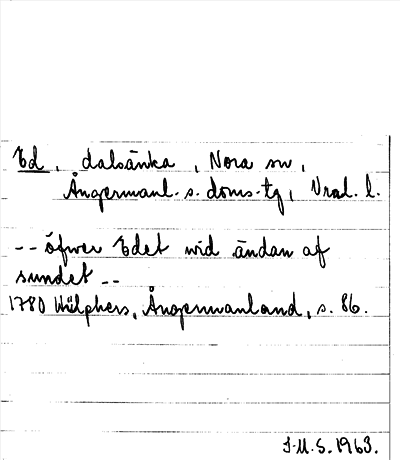 Ed, dalsänka, Nora sn,
Ångermanl. s. doms-tg, Vnal. l.
-- öfwer Edet wid ändan af
sundet --
1780 Hülphers, Ångermanland, s. 86.
J.M.S. 1963.